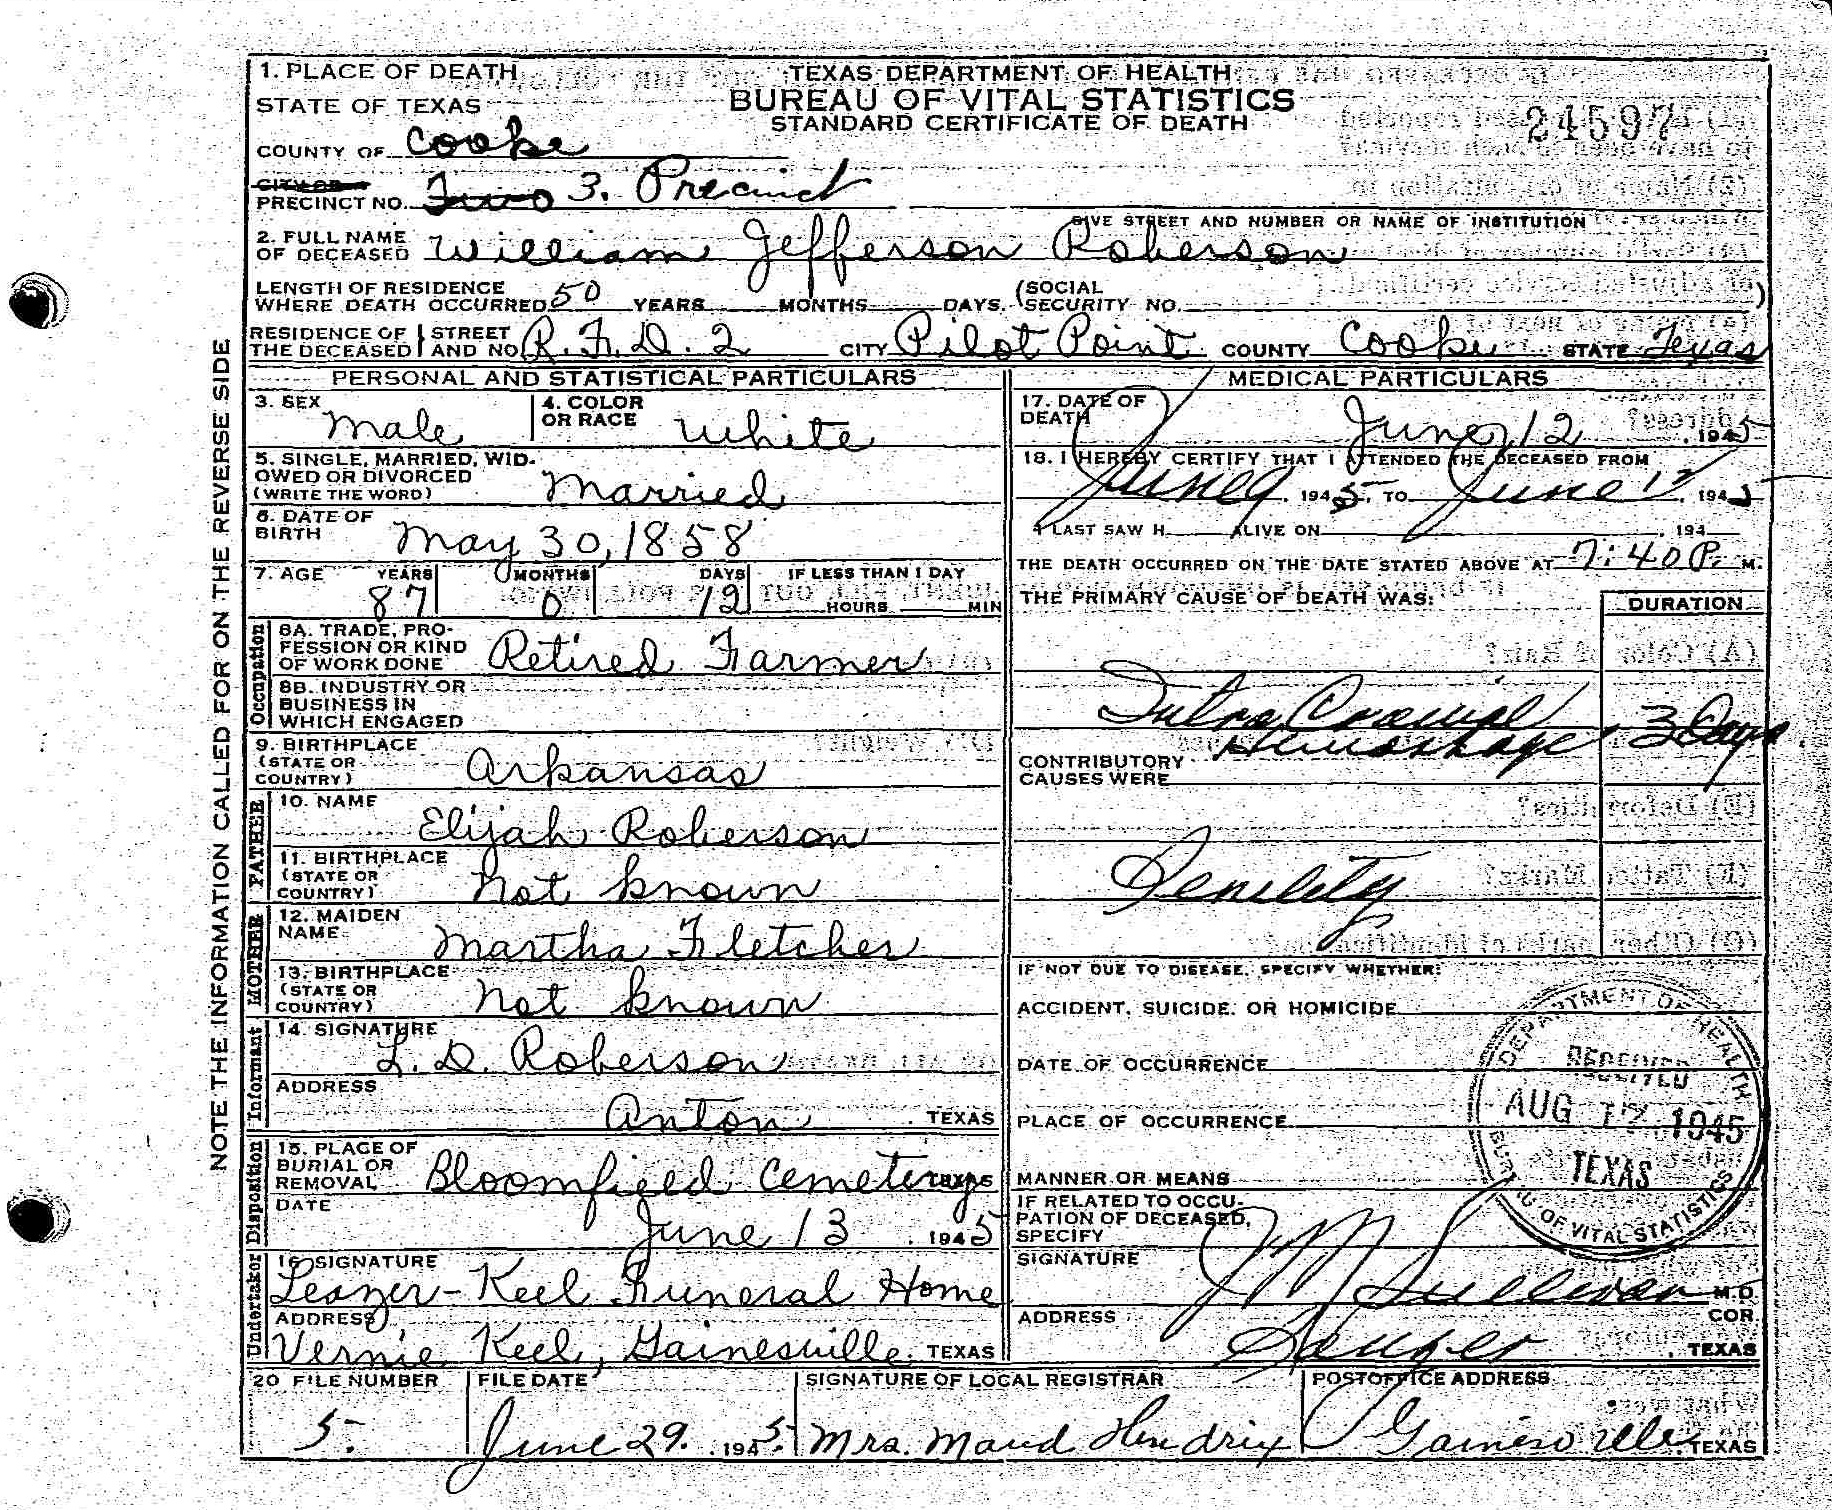 1. PLACE OF DEATH
STATE OF TEXAS
COUNTY OF Cooke
CITY OR
PRECINCT NO. Two 3. Precinct
TEXAS DEPARTMENT OF HEALTH
BUREAU OF VITAL STATISTICS
STANDARD CERTIFICATE OF DEATH
24597
GIVE STREET AND NUMBER OR NAME OF INSTITUTION
2. FULL NAME OF DECEASED William Jefferson Roberson
LENGTH OF RESIDENCE WHERE DEATH OCCURRED 50 YEARS MONTHS DAYS. (SOCIAL SECURITY NO. )
RESIDENCE OF THE DECEASED STREET AND NO. R.F.D. 2 CITY Pilot Point COUNTY Cooke STATE Texas
NOTE THE INFORMATION CALLED FOR ON THE REVERSE SIDE
PERSONAL AND STATISTICAL PARTICULARS
3. SEX Male
4. COLOR OR RACE White
5. SINGLE, MARRIED, WIDOWED OR DIVORCED (WRITE THE WORD) Married
6. DATE OF BIRTH May 30, 1858
7. AGE YEARS 87 MONTHS 0 DAYS 12 IF LESS THAN 1 DAY HOURS MIN
Occupation
8A. TRADE, PROFESSION OR KIND OF WORK DONE Retired Farmer
8B. INDUSTRY OR BUSINESS IN WHICH ENGAGED
9. BIRTHPLACE (STATE OR COUNTRY) Arkansas
FATHER
10. NAME Elijah Roberson
11. BIRTHPLACE (STATE OR COUNTRY) not known
MOTHER
12. MAIDEN NAME Martha Fletcher
13. BIRTHPLACE (STATE OR COUNTRY) not known
Informant
14. SIGNATURE L. D. Roberson
ADDRESS Anton, TEXAS
Disposition
15. PLACE OF BURIAL OR REMOVAL Bloomfield Cemetery TEXAS
DATE June 13, 1945
Undertaker
16. SIGNATURE Leazer-Keel Funeral Home
ADDRESS Vernie Keel, Gainesville. TEXAS
MEDICAL PARTICULARS
17. DATE OF DEATH June 12, 1945
18. I HEREBY CERTIFY THAT I ATTENDED THE DECEASED FROM
June 9, 1945, TO June 12, 1945
I LAST SAW H ALIVE ON , 194
THE DEATH OCCURRED ON THE DATE STATED ABOVE AT 7:40 P. M.
THE PRIMARY CAUSE OF DEATH WAS: DURATION
Intra Cranial Hemorrhage 3 Days
CONTRIBUTORY CAUSES WERE
Senility
IF NOT DUE TO DISEASE, SPECIFY WHETHER:
ACCIDENT, SUICIDE, OR HOMICIDE
DATE OF OCCURRENCE
PLACE OF OCCURRENCE
MANNER OR MEANS
IF RELATED TO OCCUPATION OF DECEASED, SPECIFY
SIGNATURE J M Sullivan M.D.
COR
ADDRESS Sanger, TEXAS
DEPARTMENT OF HEALTH
RECEIVED
AUG 17 1945
TEXAS
BUREAU OF VITAL STATISTICS
20 FILE NUMBER 5.
FILE DATE June 29. 1945.
SIGNATURE OF LOCAL REGISTRAR Mrs. Maud Hendrix
POSTOFFICE ADDRESS Gainesville TEXAS